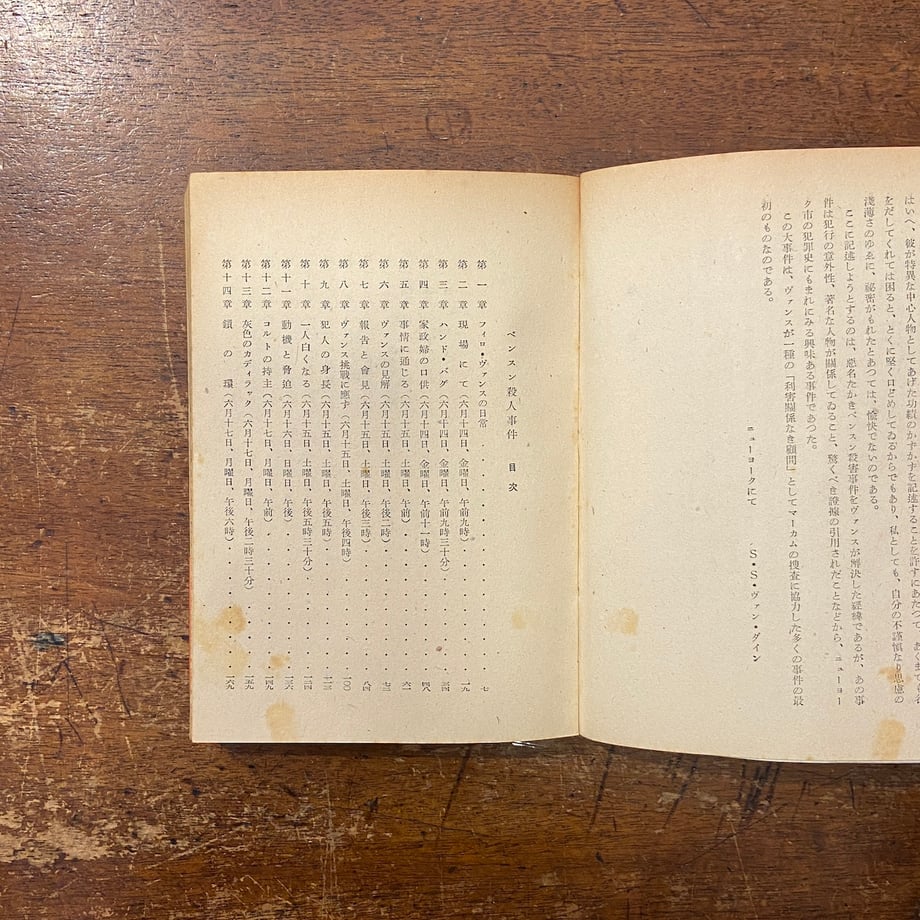 はいへ、彼が特異な中心人物としてあげた功績のかずかずを記述することを許すにあたつて、あくまで
をだしてくれては困ると、とくに堅く口どめしてゐるからでもあり、私としても、自分の不謹愼なり思慮の
淺薄さのゆゑに、祕密がもれたとあつては、愉快でないのである。
ここに記述しようとするのは、惡名たかきベンスン殺害事件をヴァンスが解決した經緯であるが、あの事
件は犯行の意外性、著名な人物が關係してゐること、驚くべき證據の引用されたことなどから、ニューヨー
ク市の犯罪史にもまれにみる興味ある事件であつた。
この大事件は、ヴァンスが一種の「利害關係なき顧問」としてマーカムの搜査に協力した多くの事件の最
初のものなのである。
ニューヨークにて　S・S・ヴァン・ダイン
ベンスン殺人事件　目次
第一章　フィロ・ヴァンスの日常・・・七
第二章　現場にて（六月十四日、金曜日、午前九時）・・・一九
第三章　ハンド・バグ（六月十四日、金曜日、午前九時三十分）・・・三四
第四章　家政婦の口供（六月十四日、金曜日、午前十一時）・・・四八
第五章　事情に通じる（六月十五日、土曜日、午前）・・・六一
第六章　ヴァンスの見解（六月十五日、土曜日、午後二時）・・・七三
第七章　報告と會見（六月十五日、土曜日、午後三時）・・・八四
第八章　ヴァンス挑戰に應ず（六月十五日、土曜日、午後四時）・・・一〇〇
第九章　犯人の身長（六月十五日、土曜日、午後五時）・・・
第十章　一人白くなる（六月十五日、土曜日、午後五時三十分）・・・一二四
第十一章　動機と脅迫（六月十六日、日曜日、午後）・・・一三六
第十二章　コルトの持主（六月十七日、月曜日、午前）・・・一四九
第十三章　灰色のカディラック（六月十七日、月曜日、午後二時三十分）・・・一五九
第十四章　鎖の環（六月十七日、月曜日、午後六時）・・・一六九